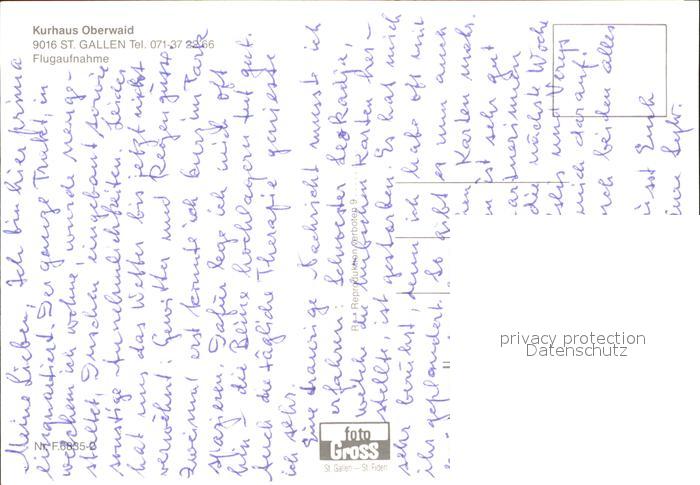 Kurhaus Oberwaid
9016 ST. GALLEN Tel. 071-37 22 66
Flugaufnahme
Meine Lieben, Ich bin hier prima
einquartiert. Der ganze Trakt, in
welchem ich wohne, wurde
stellt, Duschen eingebaut sowie
sonstige Annehmlichkeiten. Leider
hat uns das Wetter bis jetzt nicht
verwöhnt: Gewitter und Regengüsse.
Zweimal erst konnte ich kurz im Park
spazieren. Dafür lege ich mich oft
hin – die Beine hochlagern tut gut.
Auch die tägliche Therapie geniesse
ich sehr.
Eine traurige Nachricht musste ich
erfahren: Schwester
welche die hübschen Karten her-
stellte, ist gestorben. Es hat mich
sehr berührt, denn ich habe oft mit
ihr geplaudert. So gibt es nun auch
Karten mehr.
ist sehr gut
artnerinnen
die nächste Woche
mich darauf.
noch beiden alles
Euch
Repro Reproduktion verboten 9
foto
Gross
St. Gallen — St. Fiden
privacy protection
Datenschutz